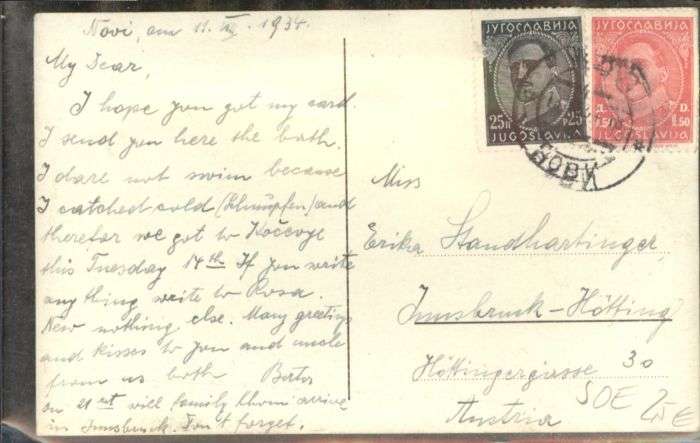 Novi, am 11. 193
My Dear,
I hope you got my card.
I send you here the bath.
I dare not swim because
I catched cold (Schnupfen) and
therefor we got to Kočevje
this Tuesday 14th. If you write
anything write to Rosa.
New nothing else. Many greetings
and kisses to you and uncle
from us both
on 21 will family Thom arrive
in Innsbruck. Don't forget.
ЈУГОСЛАВИЈА
25п
25
JUGOSLAVIJA
ЈУГОСЛАВИЈА
Д
D
1.50
1.50
JUGOSLAVIJA
НОВИ
Miss
Erika Standhartinger,
Innsbruck-Hötting
Höttingergasse 30
Austria
SOE 25€